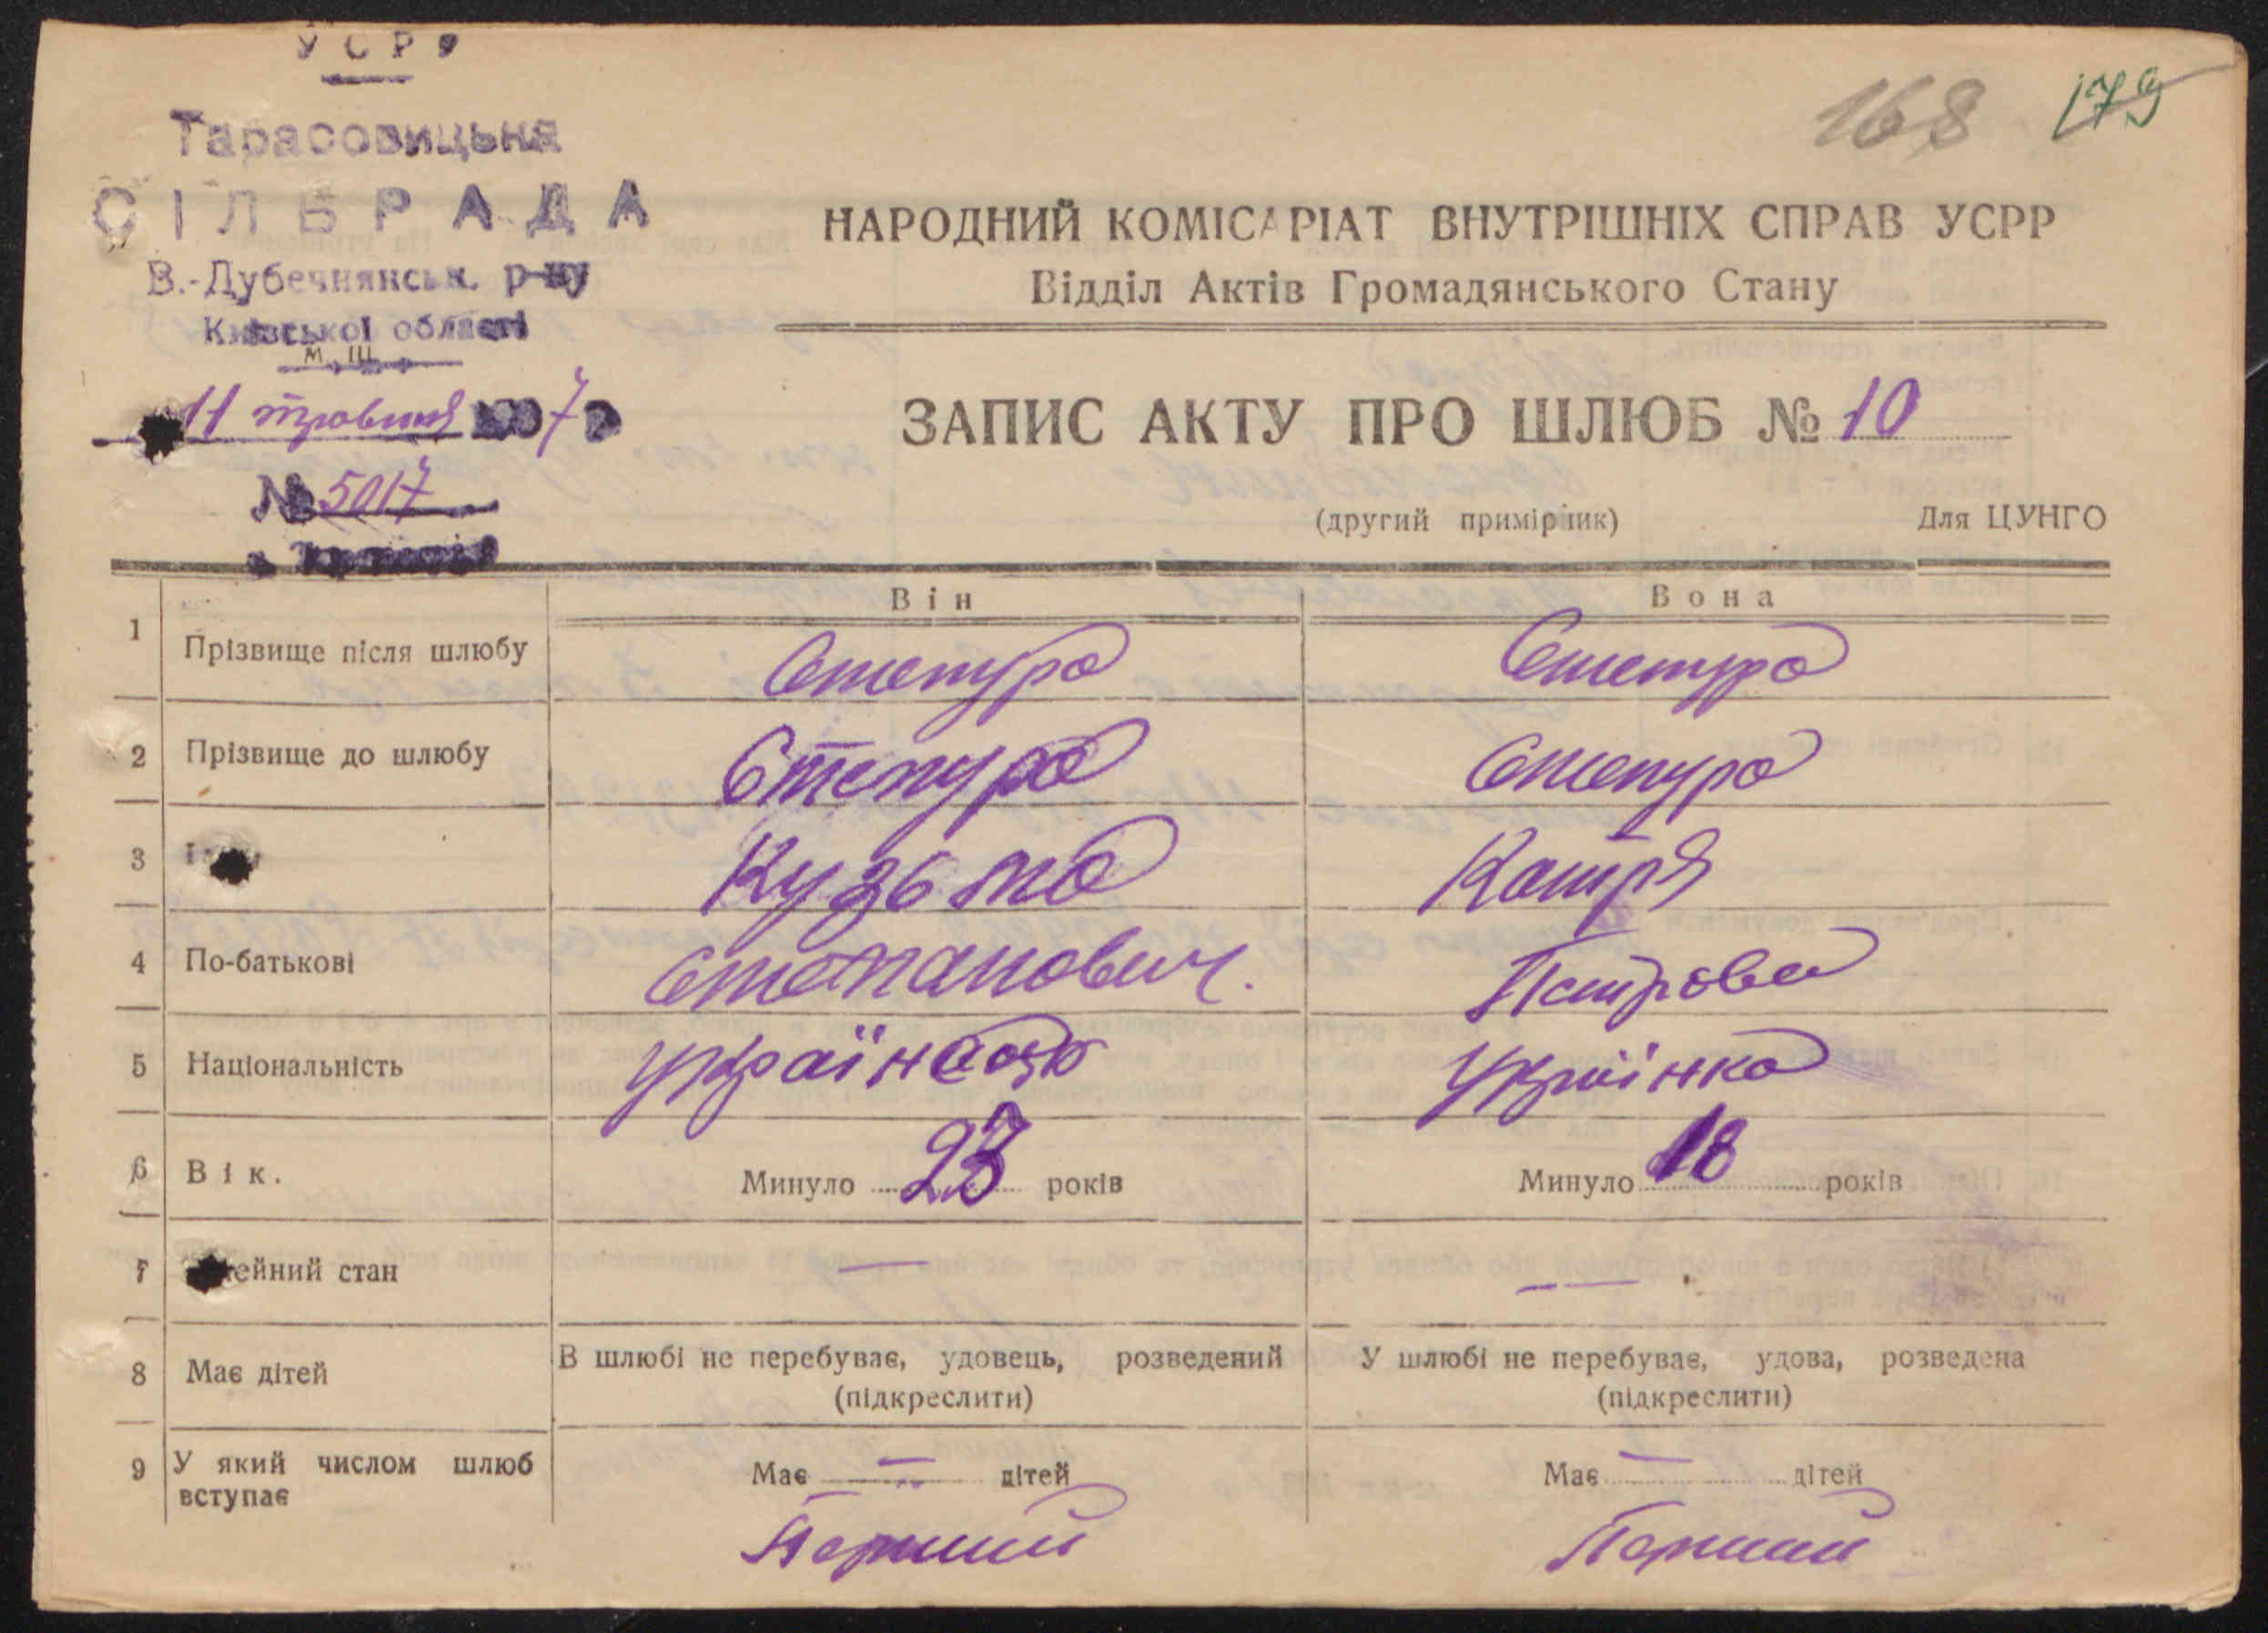 УСРР
Тарасовицька
СІЛЬРАДА
В.-Дубечнянськ. р-ну
Київської області
М. Ш.
11 травня 1937 р
№ 5017
168 179
НАРОДНИЙ КОМІСАРІАТ ВНУТРІШНІХ СПРАВ УСРР
Відділ Актів Громадянського Стану
ЗАПИС АКТУ ПРО ШЛЮБ № 10
(другий примірник) Для ЦУНГО
Він Вона
1 Прізвище після шлюбу Степура Степура
2 Прізвище до шлюбу Степура Степура
3 Кузьма Катря
4 По-батькові Степанович. Петрова
5 Національність Українець Українка
6 Вік. Минуло 23 років Минуло 18 років
7 ейний стан — —
8 Має дітей В шлюбі не перебуває, удовець, розведений У шлюбі не перебуває, удова, розведена
(підкреслити) (підкреслити)
9 У який числом шлюб Має — дітей Має — дітей
вступає
Перший Перший